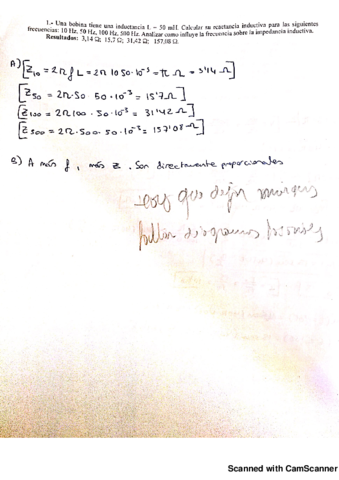 1.- Una bobina tiene una inductancia L = 50 mH. Calcular su reactancia inductiva para las siguientes
frecuencias: 10 Hz, 50 Hz, 100 Hz, 500 Hz. Analizar como influye la frecuencia sobre la impedancia inductiva.
Resultados: 3,14 Ω; 15,7 Ω; 31,42 Ω; 157,08 Ω.
A) [Z10 = 2π f L = 2π 10 50·10⁻³ = π Ω = 3'14 Ω]
[Z50 = 2π·50 50·10⁻³ = 15'7 Ω]
[Z100 = 2π100·50·10⁻³ = 31'42 Ω]
[Z500 = 2π·500·50·10⁻³ = 157'08 Ω]
B) A más f, más Z. Son directamente proporcionales
que dejar
faltan diagramas
Scanned with CamScanner